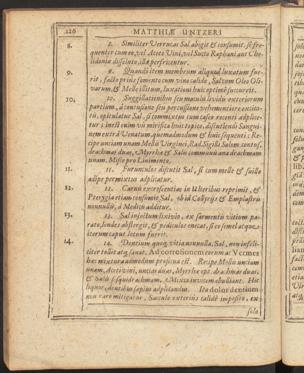 126 MATTHIÆ UNTZERI
8. 8. Similiter Verrucas Sal abigit & consumit, si fre-
quenter cum eo, vel Aceto Vini, vel Succo Raphani aut Che-
lidoniæ dissoluto, illæ perfricentur.
9. 9. Quando item membrum aliquod luxatum fue-
rit, facto prius fomento cum vino calido, Sal cum Oleo Oli-
varum, & Melle illitum, luxationi huic optimè succurrit.
10. 10. Suggillationibus seu maculis lividis exteriorum
partium, à contusione seu percussione vehementiore excita-
tis, opitulatur Sal, si commixtum cum caseo recenti applice-
tur; inest enim vis mirifica huic topico, discutiendi Sangui-
nem extra Venas
cipe unciam unam Mellis Virginei, Rad. Sigilli Salom. contus.
drachmas duas, Myrrhæ & Salis communis ana drachmam
unam. Misce pro Linimento.
11. 11. Furunculos discutit Sal, si cum melle & suillo
adipe permixtus applicatur.
12. 12. Carnis excrescentias in Ulceribus reprimit, &
Pterygia etiam consumit Sal, ob id Collyriis & Emplastris
nonnullis, à Medicis additur.
13. 13. Sal injectum lixivio, ex sarmentis vitium pa-
rato, lendes abstergit, & pediculos enecat, si eo semel atque
iterum caput lotum fuerit.
14. 14. Dentium quoq; vitia nonnulla, Sal, non infeli-
citer tollit atq; sanat. Ad corrosionem eorum a Vermi-
bus mixtura admodum proficua est. Recipe Mellis unciam
unam, Aceti vini, uncias duas, Myrrhæ opt. drachmas duas,
& Salis sesquidrachmam, Mixta invicem ebulliant. Hic
liquor, dentibus sæpius applicandus. Ita dolor dentium
Sacculo exterius calidè imposito, ex-
sola